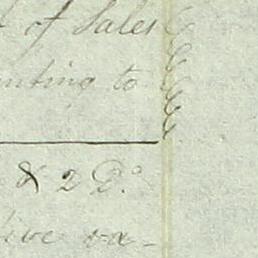 of Sales
nting to
& 2 Do.
ive va-